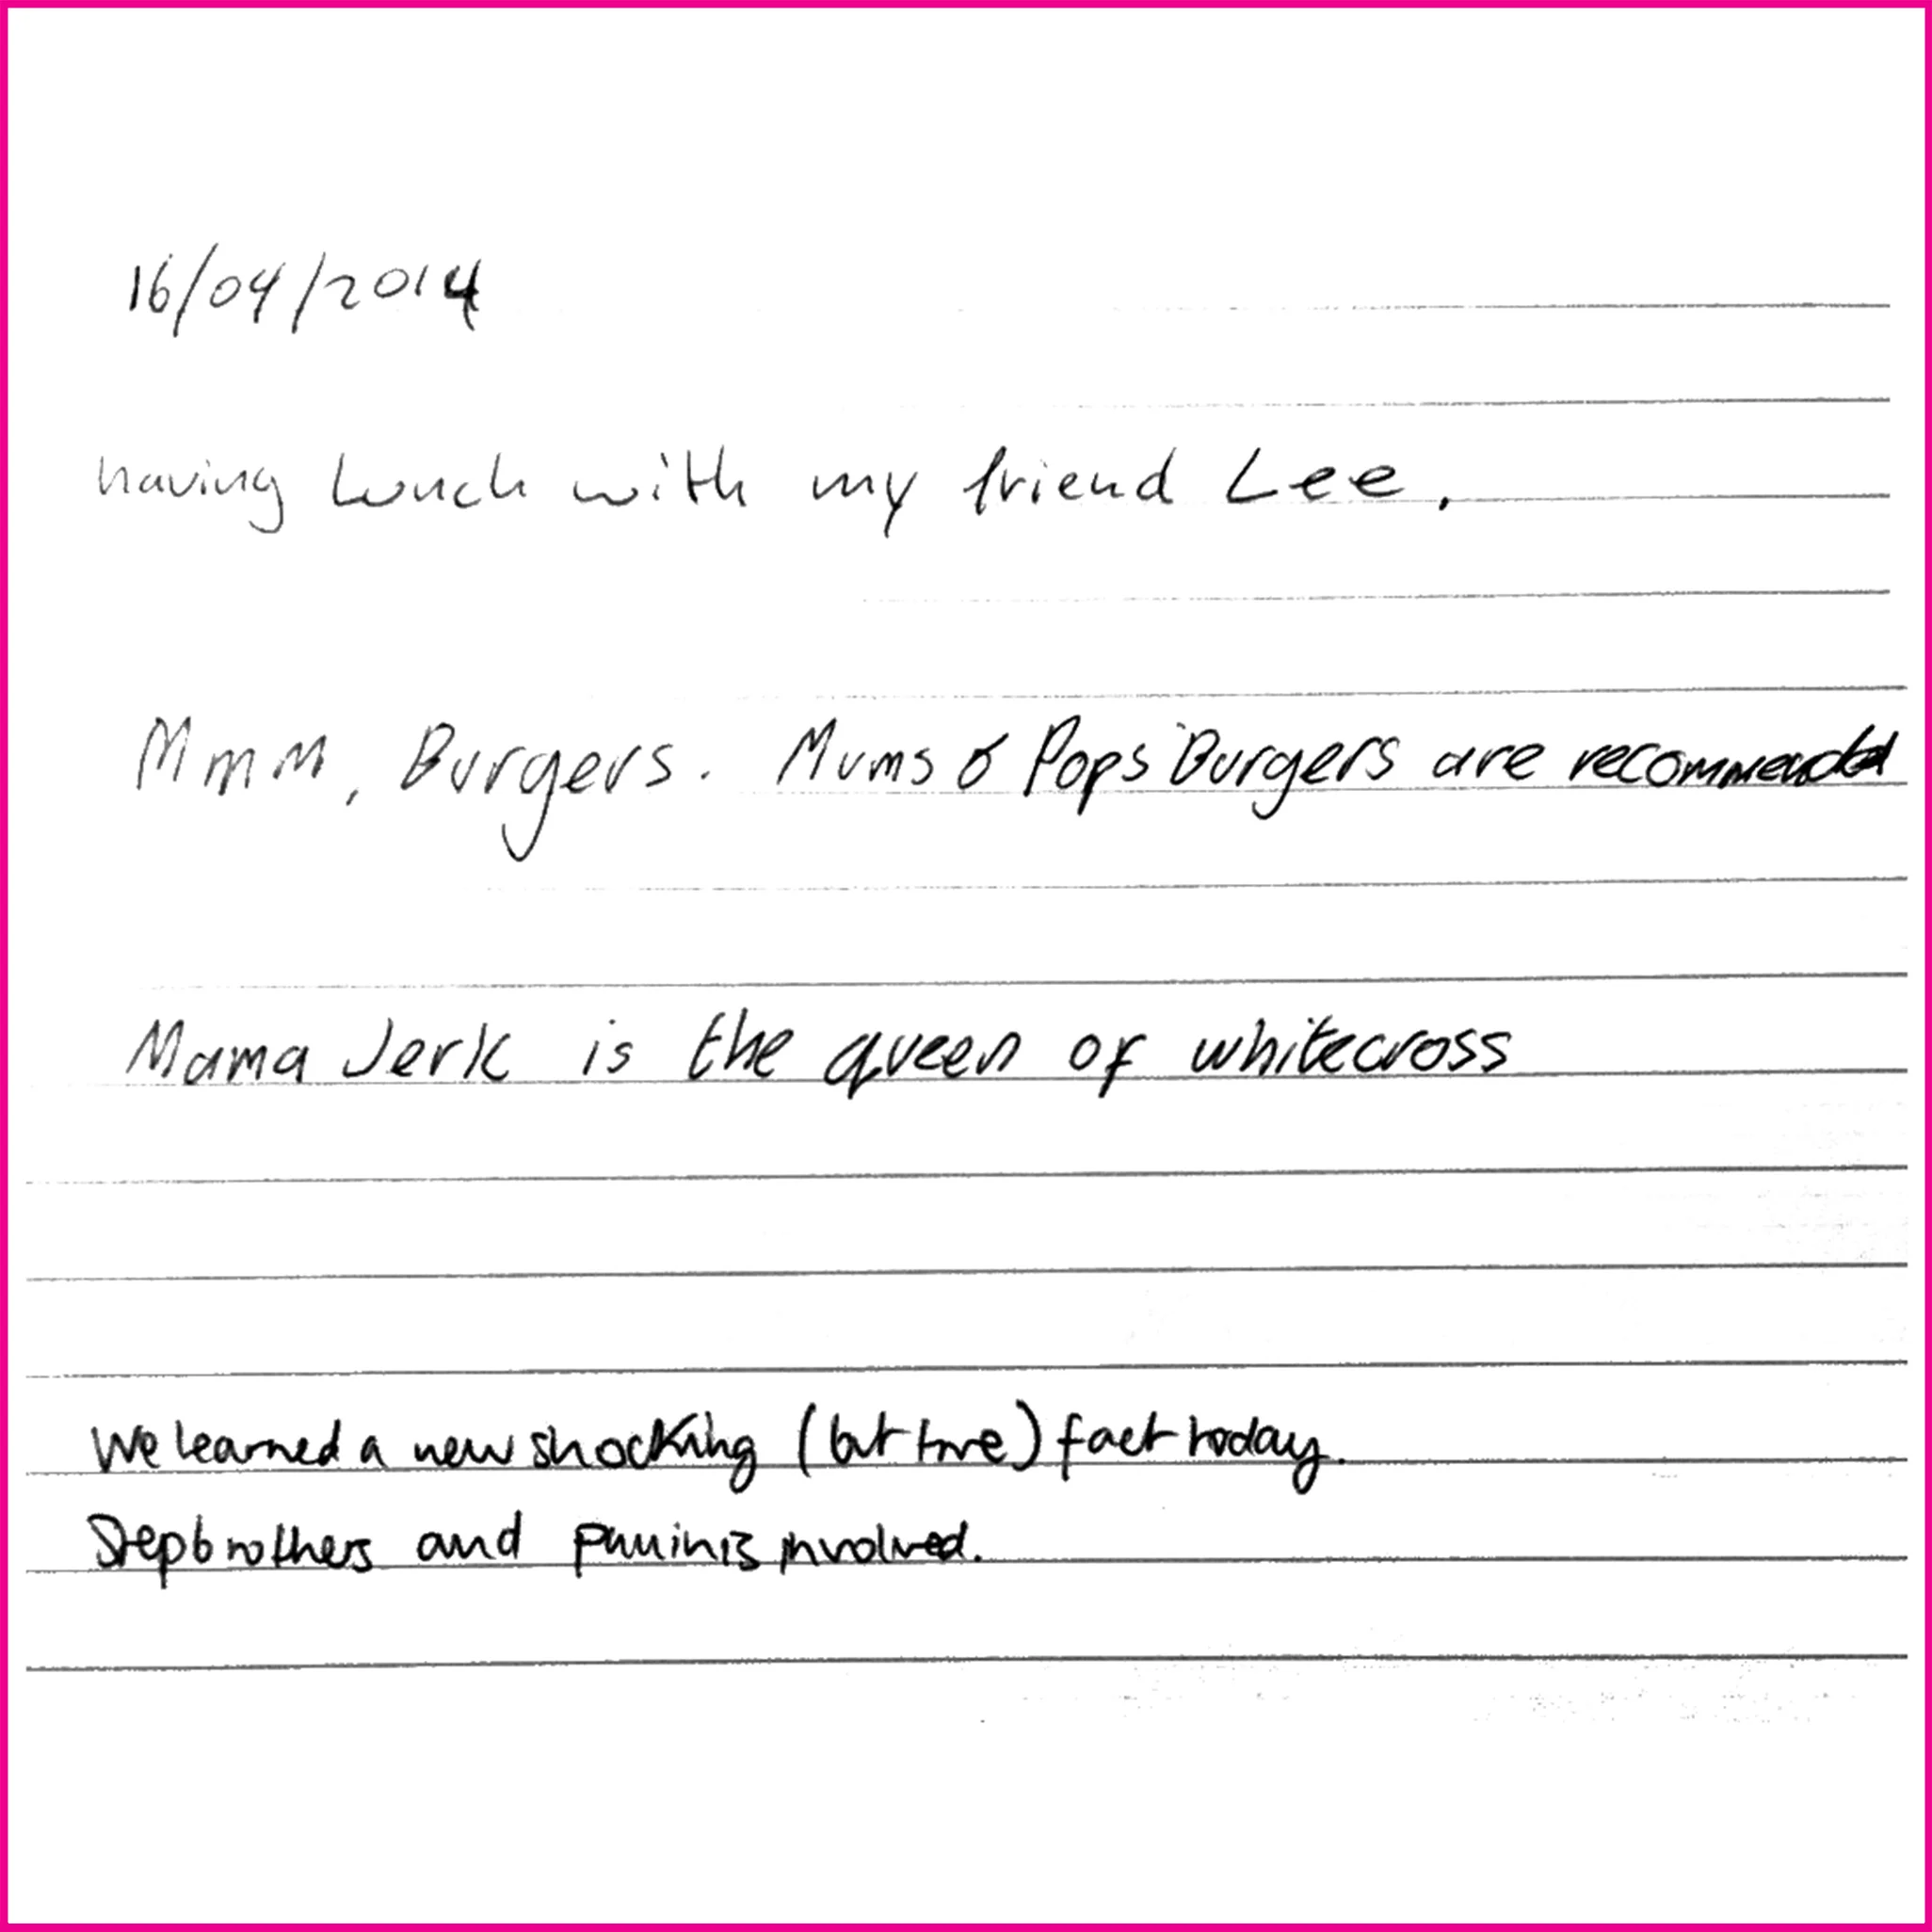 16/04/2014
having lunch with my friend Lee.
Mmm, Burgers. Mums & Pops Burgers are recommended
Mama Jerk is the queen of whitecross
We learned a new shocking (but true) fact today.
Stepbrothers and paninis involved.